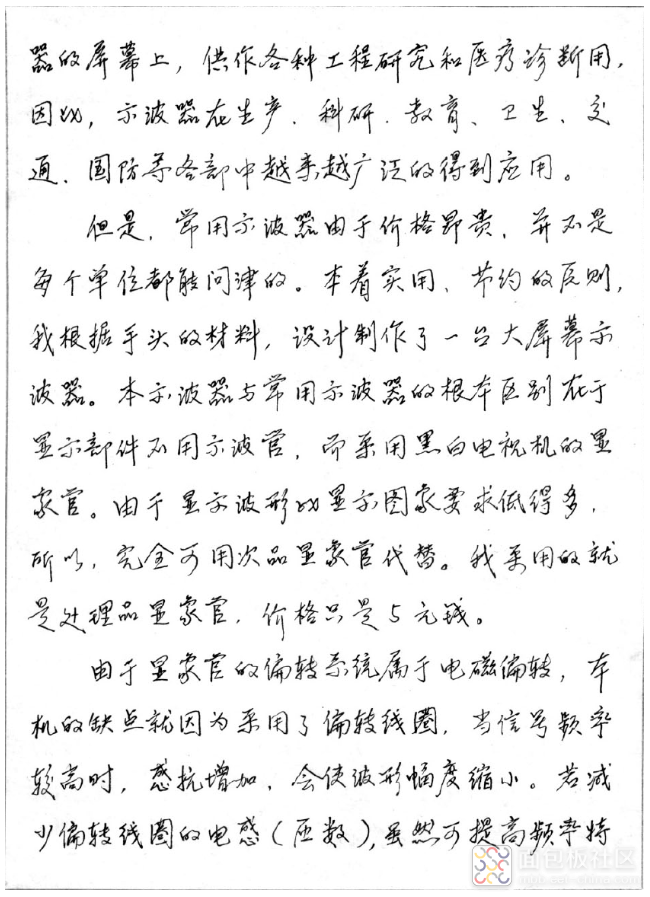 器的屏幕上，供作各种工程研究和医疗诊断用，
因此，示波器在生产、科研、教育、卫生、交
通、国防等各部中越来越广泛的得到应用。
但是，常用示波器由于价格昂贵，并不是
每个单位都能问津的。本着实用、节约的原则，
我根据手头的材料，设计制作了一台大屏幕示
波器。本示波器与常用示波器的根本区别在于
显示部件不用示波管，而采用黑白电视机的显
象管。由于显示波形比显示图象要求低得多，
所以，完全可用次品显象管代替。我采用的就
是处理品显象管，价格只是5元钱。
由于显象管的偏转系统属于电磁偏转，本
机的缺点就因为采用了偏转线圈，当信号频率
较高时，感抗增加，会使波形幅度缩小。若减
少偏转线圈的电感（匝数），虽然可提高频率特
面包板社区
mbb.eet-china.com